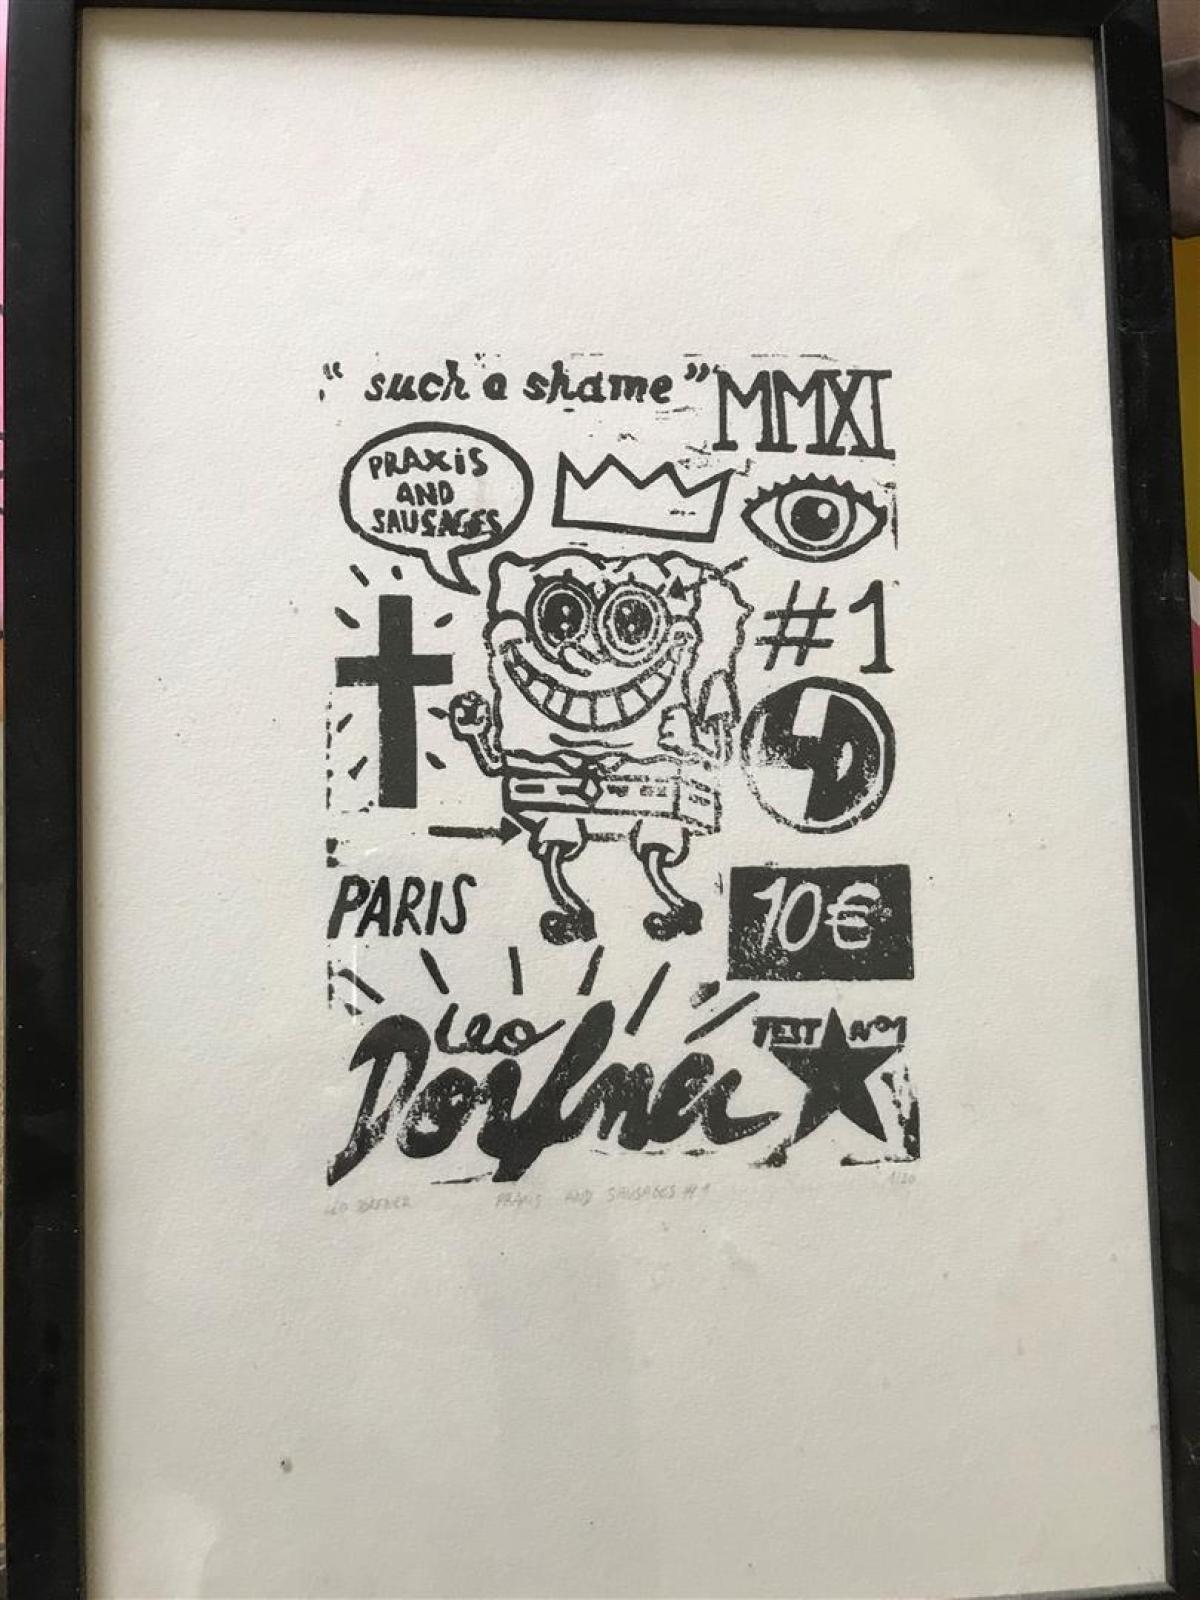 “ such a shame ”
MMXI
PRAXiS
AND
SAUSAGES
#1
PARIS
10€
Leo
Dorfner
TEST N°1
LÉO DORFNER PRAXIS AND SAUSAGES #1 1/20